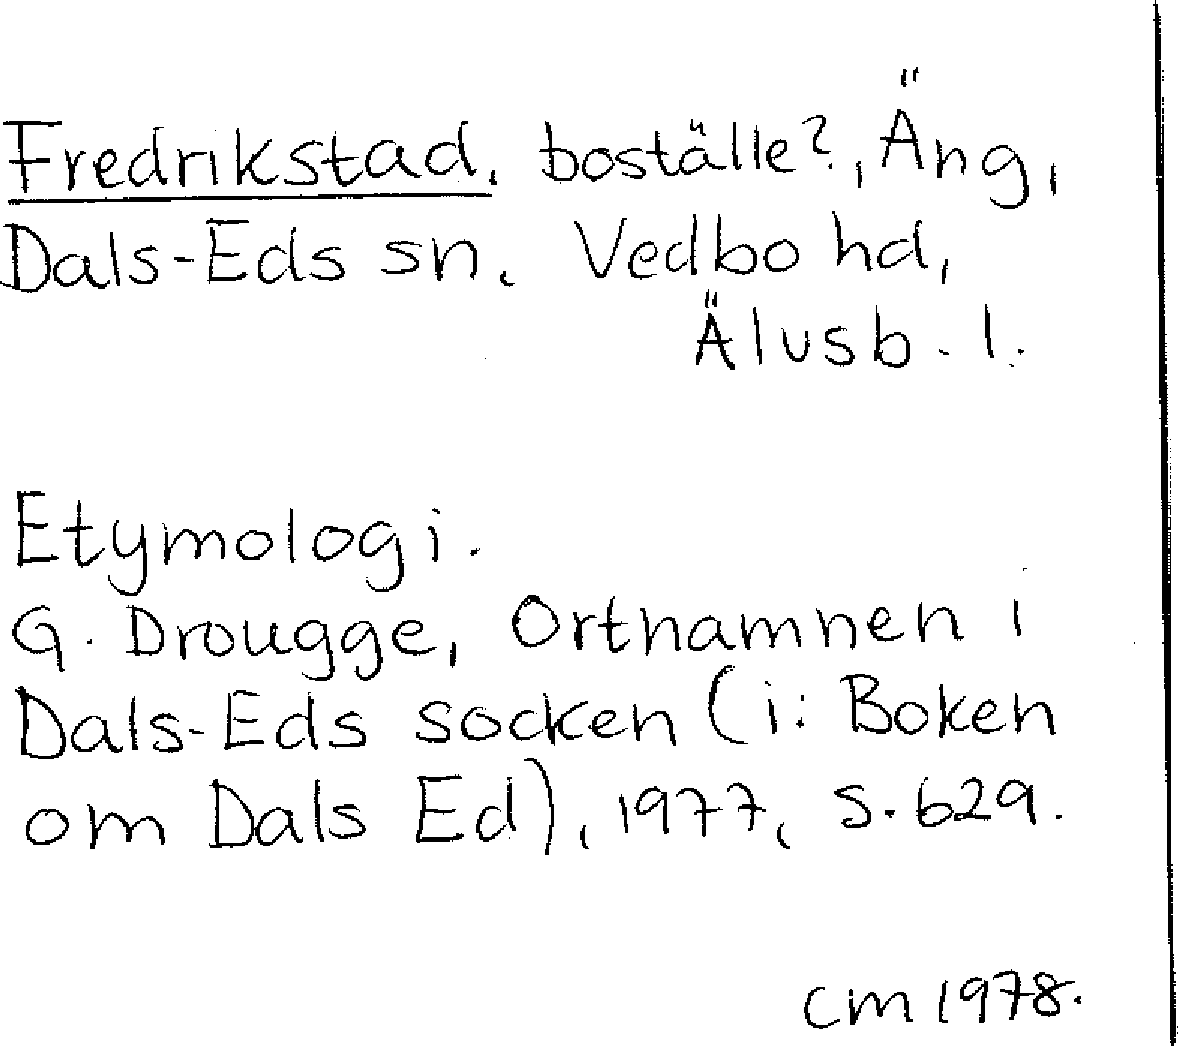 Fredrikstad, boställe?, Äng,
Dals-Eds sn, Vedbo hd,
Älvsb. l.
Etymologi.
G. Drougge, Ortnamnen i
Dals-Eds socken (i: Boken
om Dals Ed), 1977, s. 629.
CM 1978.